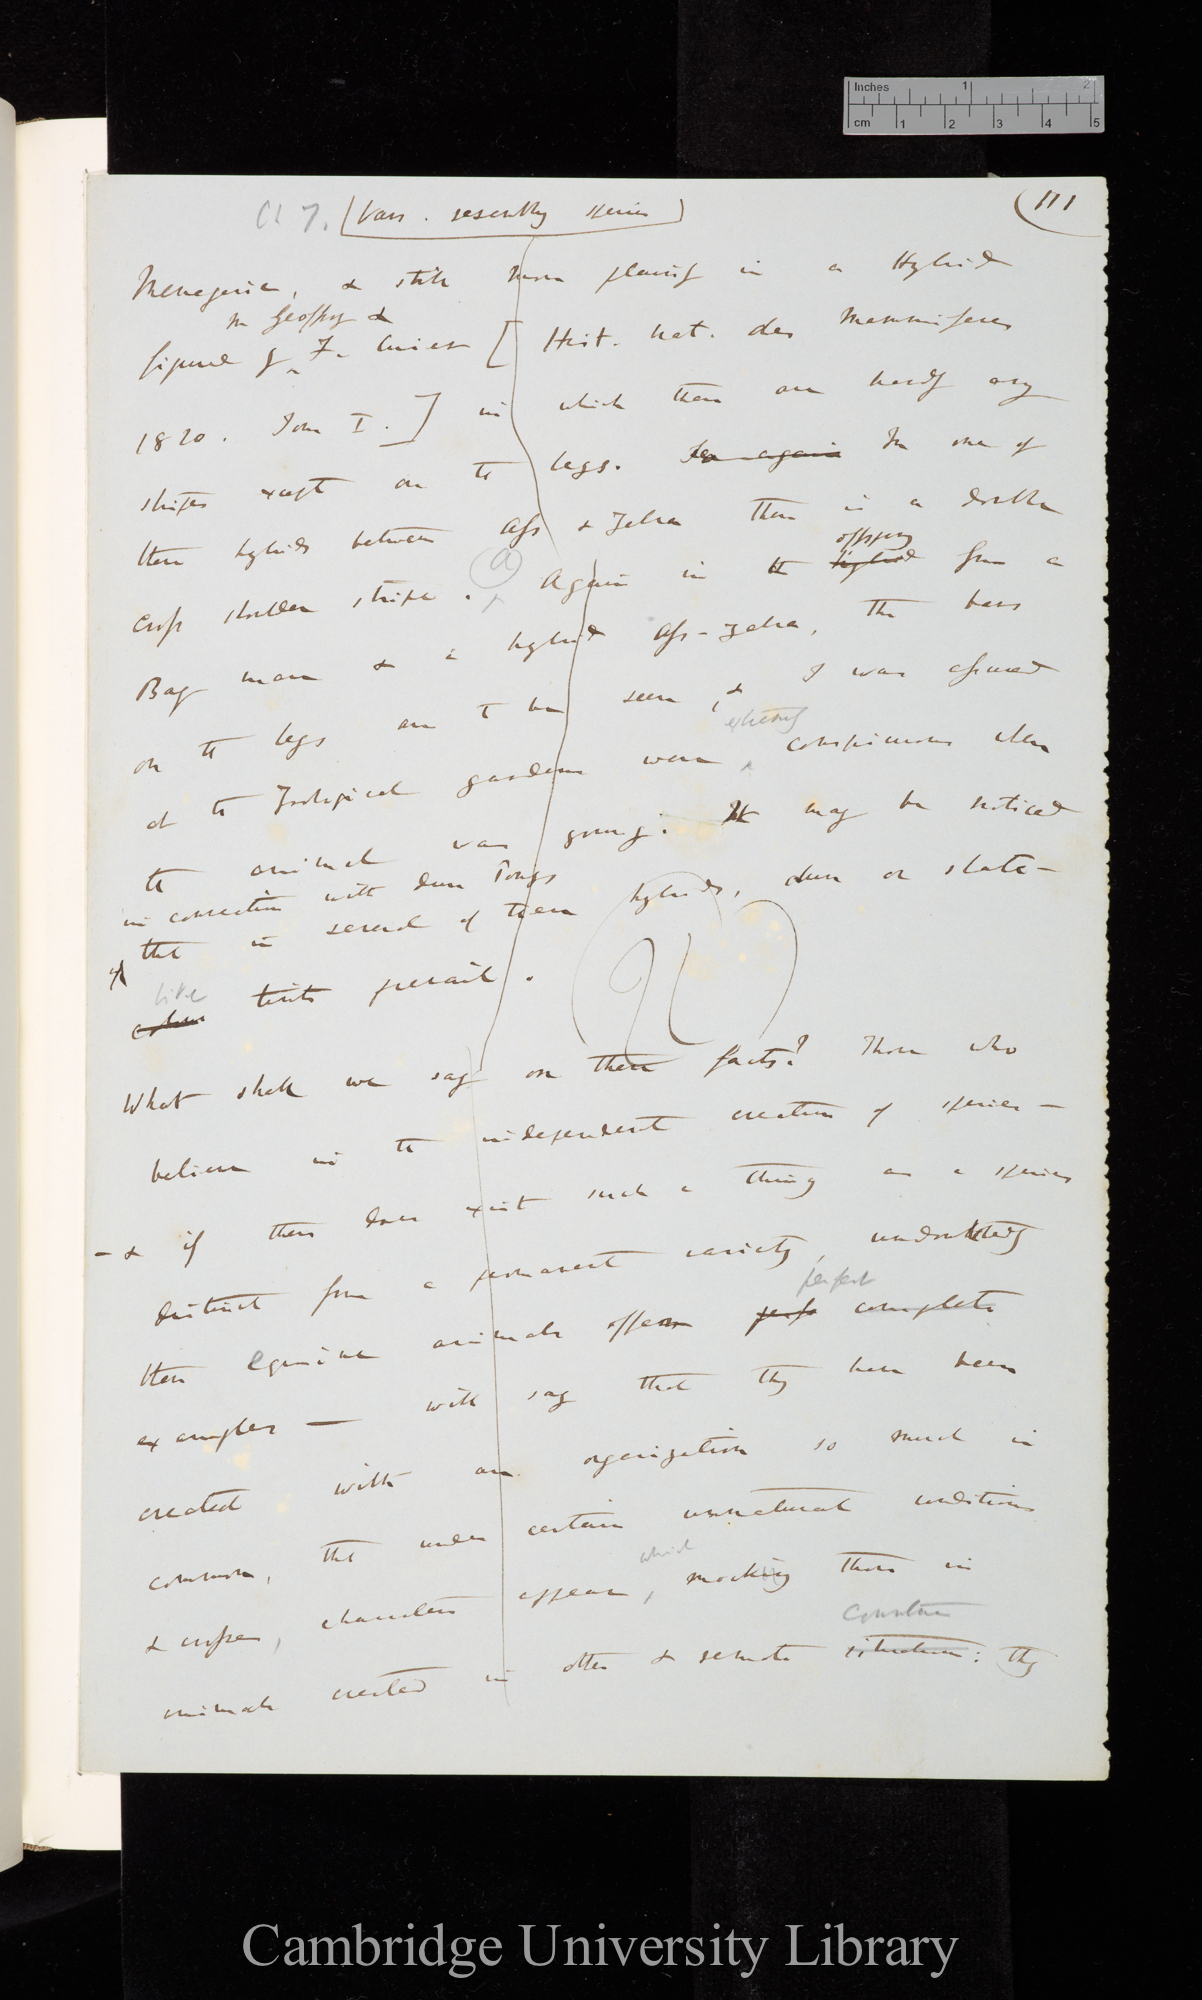 Inches 1 2
cm 1 2 3 4 5
Ch 7. (Vars. resembling species)
111
Menagerie, & still more plainly in a Hybrid
in Geoffroy &
figured by F. Cuvier [Hist. Nat. des Mammiferes
1820. Tom I.] in which there are hardly any
stripes except on the legs. So again In one of
these hybrids between Ass & Zebra there is a double
offspring
cross shoulder stripe. (a) Again in the hybrid from a
Bay mare & a hybrid Ass-zebra, the bars
on the legs are to be seen, & I was assured
extremely
at the Zoological gardens were conspicuous when
the animal was young. It may be noticed
in connection with dun Ponys
that in several of these hybrids, dun or slate-
like
colour tints prevail.
What shall we say on these facts? Those who
believe in the independent creation of species—
— & if there does exist such a thing as a species
distinct from a permanent variety, undoubtedly
perfect
these equine animals offer perfe complete
examples — will say that they have been
created with an organization so much in
common, that under certain unnatural conditions
which
& crosses, characters appear, mocking those in
countries
animals created in other & remote situations: they
Cambridge University Library